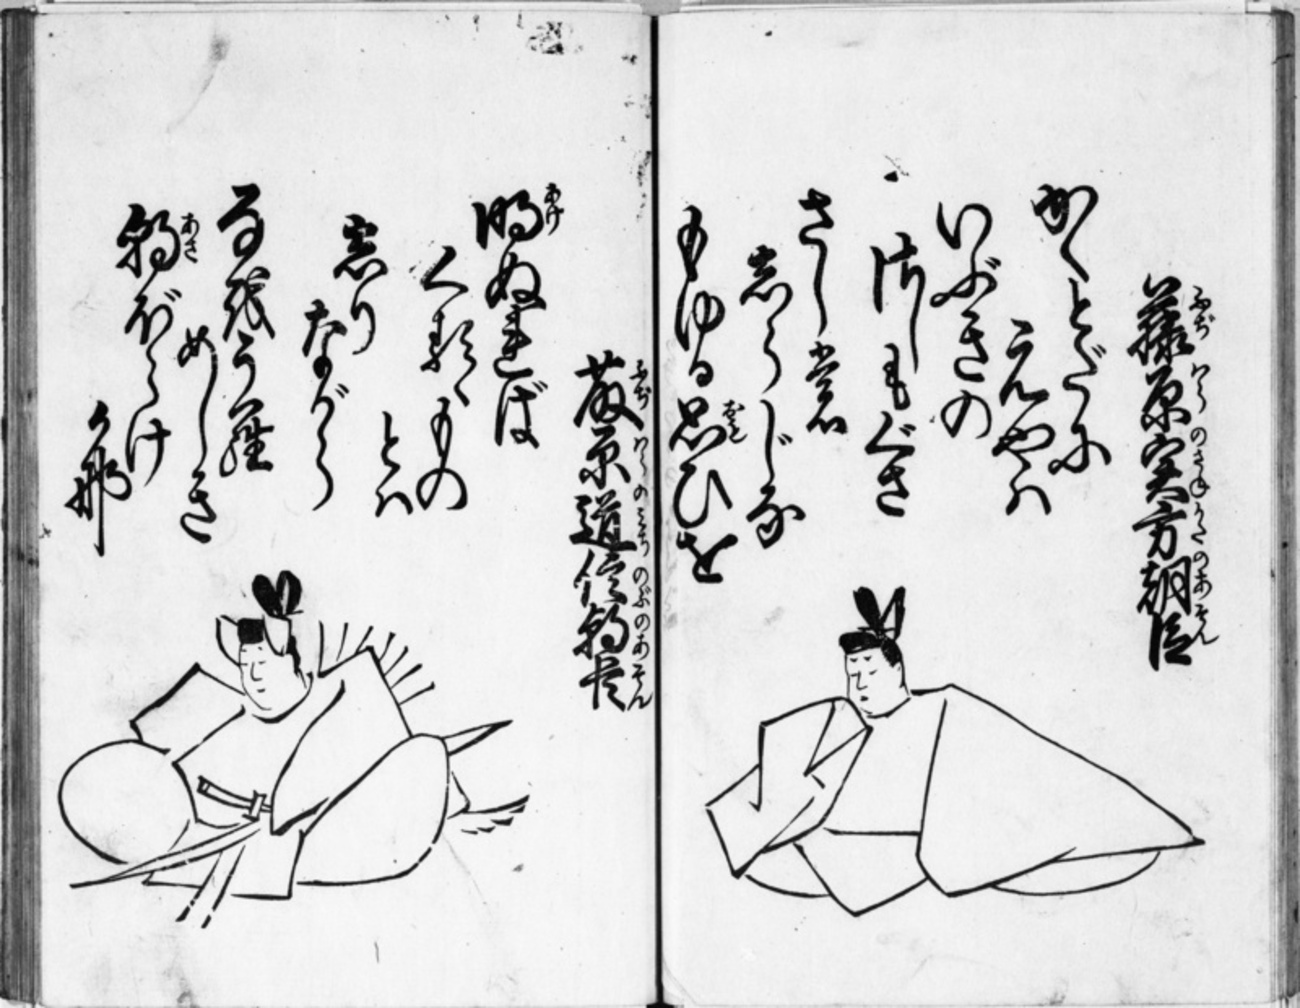 藤原実方朝臣
ふぢはらのさねかたのあそん
かくとだに
えやハ
いぶきの
さしもぐさ
さしも
しらじな
もゆる思ひを
おも
藤原道信朝臣
ふぢはらのみちのぶのあそん
明ぬれば
あけ
くるゝもの
とハ
しり
ながら
なほうら
めしき
朝ぼらけ
あさ
かな